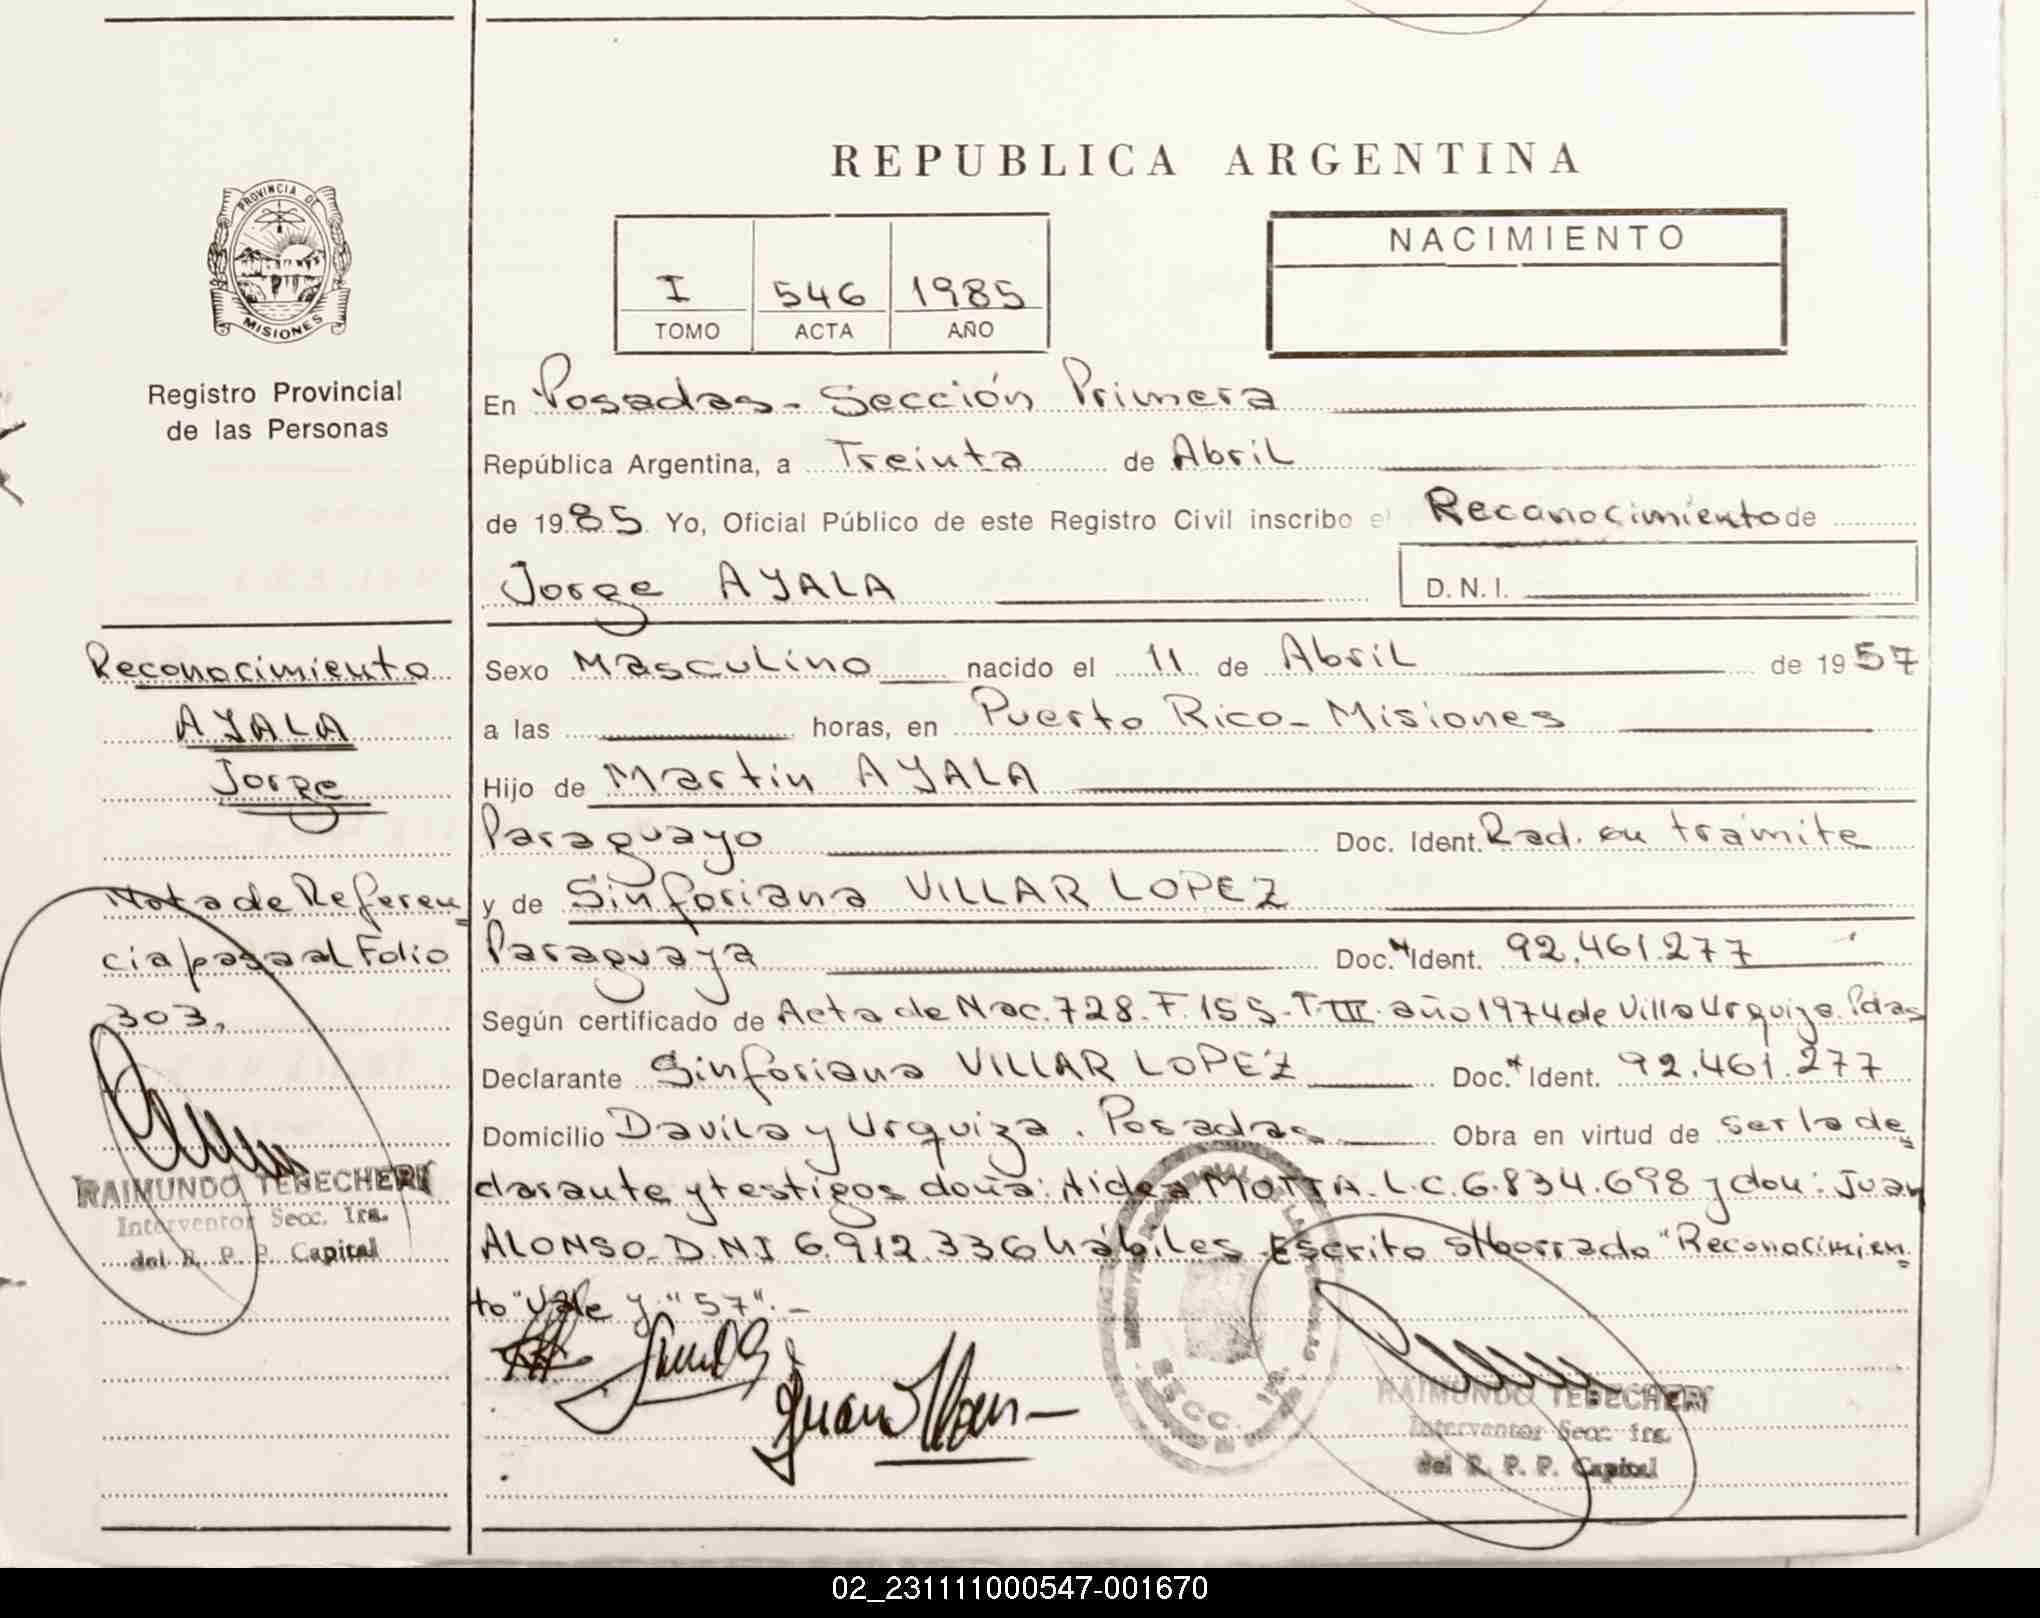 REPUBLICA ARGENTINA
PROVINCIA DE
MISIONES
Registro Provincial
de las Personas
I 546 1985
TOMO ACTA AÑO
NACIMIENTO
En Posadas - Sección Primera
República Argentina, a Treinta de Abril
de 1985 Yo, Oficial Público de este Registro Civil inscribo el Reconocimiento de
Jorge AYALA D.N.I.
Reconocimiento
AYALA
Jorge
Nota de Referen
cia pasa al Folio
303.
RAIMUNDO TEBECHERI
Interventor Secc. 1ra.
del R. P. P. Capital
Sexo Masculino nacido el 11 de Abril de 1957
a las horas, en Puerto Rico - Misiones
Hijo de Martín AYALA
Paraguayo Doc. Ident. Rad. en trámite
y de Sinforiana VILLAR LOPEZ
Paraguaya Doc. Ident. 92.461.277
Según certificado de Acta de Nac. 728. F. 155. T. III. año 1974 de Villa Urquiza. Pdas
Declarante Sinforiana VILLAR LOPEZ Doc. Ident. 92.461.277
Domicilio Davila y Urquiza. Posadas Obra en virtud de ser la de
clarante y testigos doña: Aidea MOTTA. L.C. 6.834.698 y don: Juan
ALONSO. D.N.I 6.912.336 hábiles. Escrito s/borrado "Reconocimien
to" Vale y "57". -
Juan
SECC. 1ra.
RAIMUNDO TEBECHERI
Interventor Secc. 1ra.
del R. P. P. Capital
02_231111000547-001670